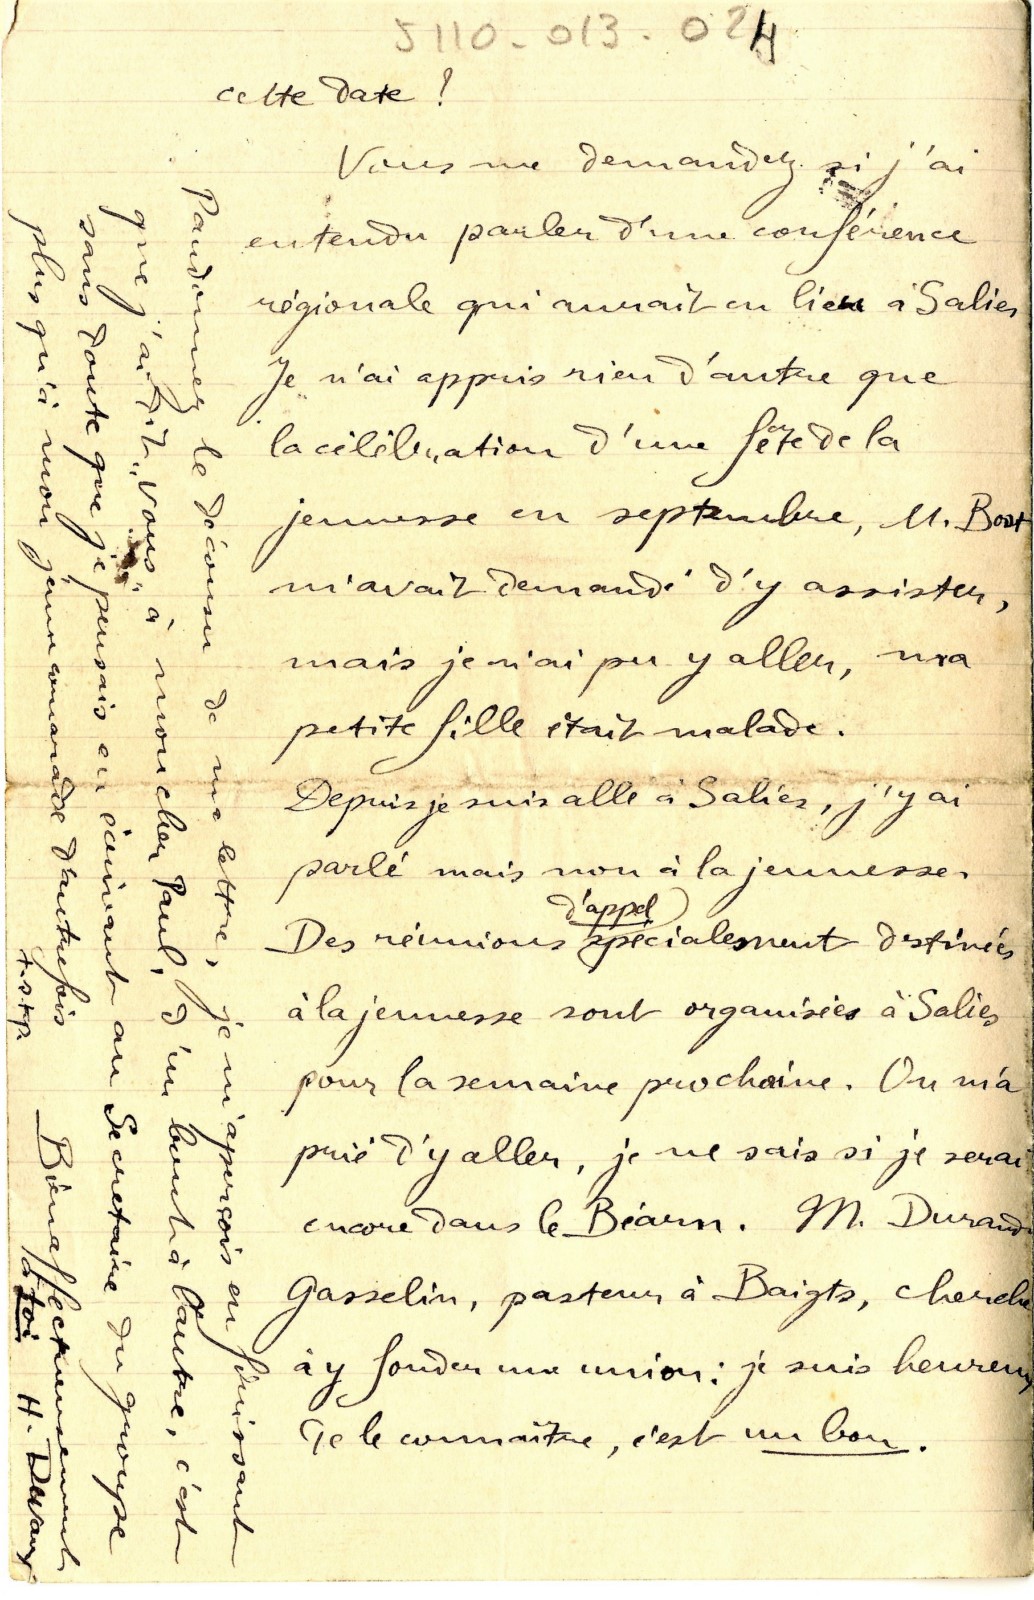 5110-013-024
cette date ?
Vous me demandez si j'ai
entendu parler d'une conférence
régionale qui aurait eu lieu à Salies
Je n'ai appris rien d'autre que
la célébration d'une fête de la
jeunesse en septembre, M. Bost
m'avait demandé d'y assister,
mais je n'ai pu y aller, ma
petite fille était malade.
Depuis je suis allé à Salies, j'y ai
parlé mais non à la jeunesse.
d'appel
Des réunions spécialement destinées
à la jeunesse sont organisées à Salies
pour la semaine prochaine. On m'a
prié d'y aller, je ne sais si je serai
encore dans le Béarn. M. Durand
Gasselin, pasteur à Baigts, cherche
à y fonder une union : je suis heureux
de le connaître, c'est un bon.
Pardonnez le décousu de ma lettre, je m'aperçois en finissant
que j'ai dit "vous" à mon cher Paul, d'un bout à l'autre, c'est
sans doute que je pensais en écrivant au Secrétaire du groupe
plus qu'à mon jeune camarade d'autrefois
t.s.v.p.
Bien affectueusement
à toi H. Devaux